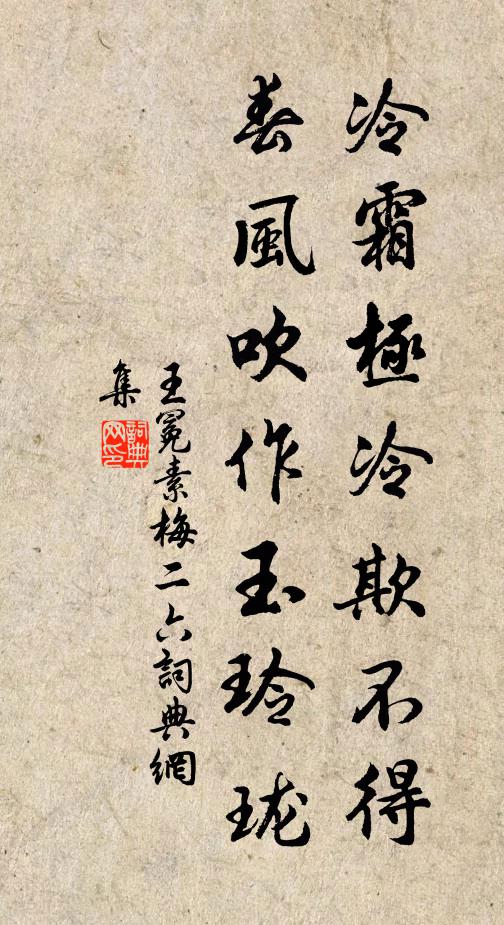 冷霜極冷欺不得
春風吹作玉玲珑
王冕素梅二六詞典網
集
詞典
网印